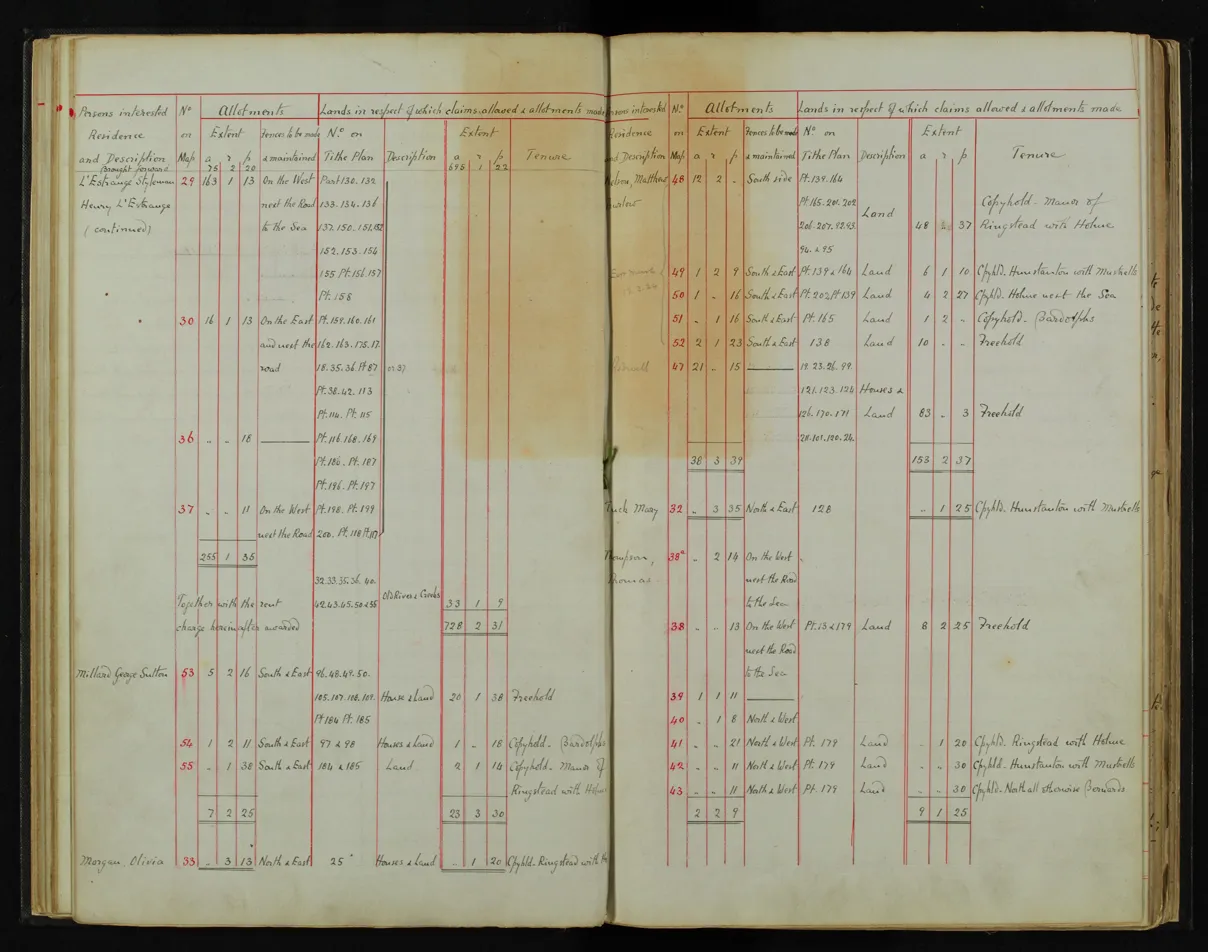 Persons interested Nº Allotments Lands in respect of which claims allowed & allotments made
Residence on Extent Fences to be made Nº on Extent
and Description Map a r p & maintained Tithe Plan Description a r p Tenure
Brought forward 75 2 20 695 1 22
L'Estrange Styleman 29 163 1 13 On the West Part 130. 132
Henry L'Estrange next the Road 133. 134. 136
(continued) to the Sea 137. 150. 151.
152. 153. 154
155 Pt. 156. 157
Pt. 158
30 16 1 13 On the East Pt. 159. 160. 161
and next the 162. 163. 175. 17.
road 18. 35. 36. Pt 87 or 37
Pt. 38. 42. 113
Pt. 114. Pt. 115
36 .. .. 18 Pt. 116. 168. 169
Pt. 186. Pt. 187
Pt. 196. Pt. 197
37 .. .. 11 On the West Pt. 198. Pt. 199
next the Road 200. Pt. 118 Pt. 117
255 1 35
32. 33. 35. 36. 40.
Together with the rent 42. 43. 45. 50 & 56 Old Rivers & Creeks 33 1 9
charge hereinafter awarded 728 2 31
Millard George Sutton 53 5 2 16 South & East 96. 48. 49. 50.
105. 107. 108. 109. House & Land 20 1 38 Freehold
Pt 184 Pt. 185
54 1 2 11 South & East 97 & 98 Houses & Land 1 .. 18 Copyhold - Bardolphs
55 .. 1 38 South & East 184 & 185 Land 2 1 14 Copyhold - Manor of
Ringstead with Holme
7 2 25 23 3 30
Morgan, Olivia 33 .. 3 13 North & East 25 Houses & Land .. 1 20 Cpyhld. Ringstead with
Persons interested Nº Allotments Lands in respect of which claims allowed & allotments made
Residence on Extent Fences to be made Nº on Extent
and Description Map a r p & maintained Tithe Plan Description a r p Tenure
Nelson, Matthew 48 12 2 .. South side Pt. 139. 164
Pt. 165. 201. 202 Land Copyhold - Manor of
206. 207. 92. 93. 48 .. 37 Ringstead with Holme
94. & 95
49 1 2 9 South & East Pt. 139 & 164 Land 6 1 10 Cpyhld. Hunstanton with Mustrells
50 1 .. 16 South & East Pt. 202, Pt 139 Land 4 2 27 Cpyhld. Holme next the Sea
51 .. 1 16 South & East Pt. 165 Land 1 2 .. Copyhold - Bardolphs
52 2 1 23 South & East 138 Land 10 .. .. Freehold
47 21 .. 15 19. 23. 26. 99.
121. 123. 124 Houses &
126. 170. 171 Land 83 .. 3 Freehold
211. 101. 120. 24.
38 3 39 153 2 37
Tuck Mary 32 .. 3 35 North & East 128 .. 1 25 Cpyhld. Hunstanton with Mustrells
Thompson, 38ª .. 2 14 On the West
Thomas next the Road
to the Sea
38 .. .. 13 On the West Pt. 13 & 179 Land 8 2 25 Freehold
next the Road
to the Sea
39 1 1 11
40 .. 1 8 North & West
41 .. .. 21 North & West Pt. 179 Land .. 1 20 Cpyhld. Ringstead with Holme
42 .. .. 11 North & West Pt. 179 Land .. .. 30 Cpyhld. Hunstanton with Mustrells
43 .. .. 11 North & West Pt. 179 Land .. .. 30 Cpyhld. Northall otherwise
2 2 9 9 1 25